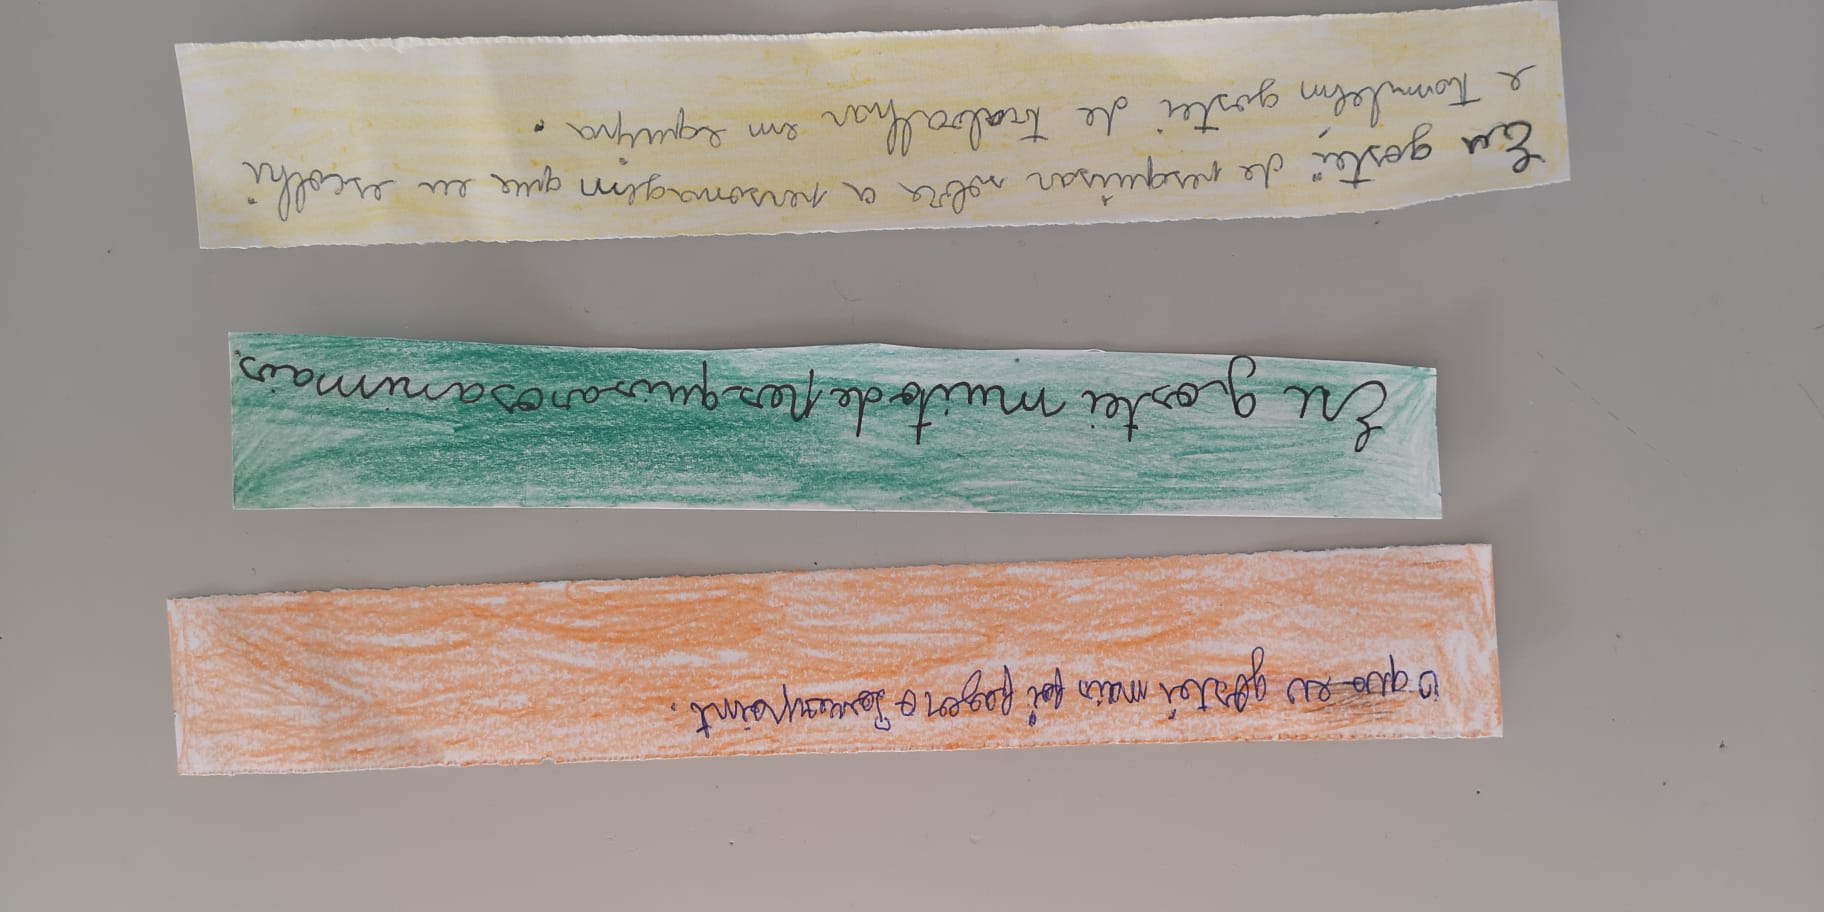 O que eu gostei mais foi fazer o Powerpoint.
Eu gostei muito de pesquisar os animais.
Eu gostei de pesquisar sobre a personagem que eu escolhi
e também gostei de trabalhar em equipa.